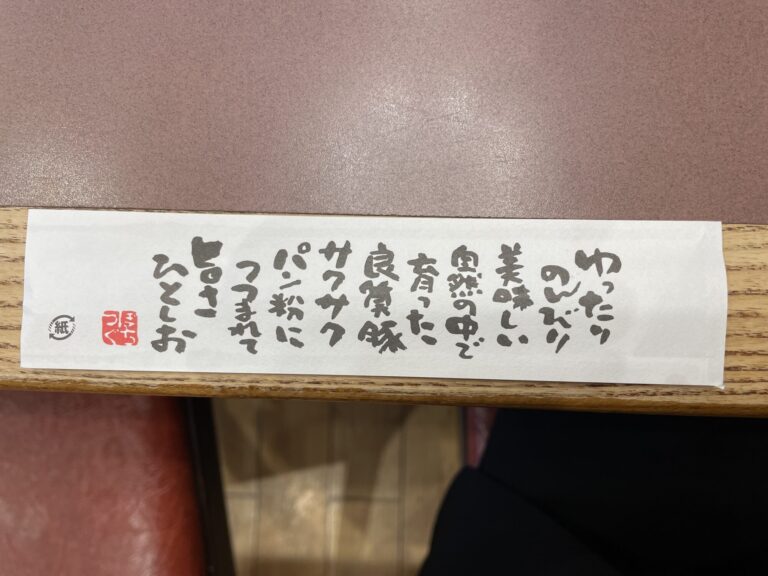 ゆったり
のんびり
美味しい
空然の中で
育った
良質豚
サクサク
パン粉に
つつまれて
旨さ
ひとしお
紙